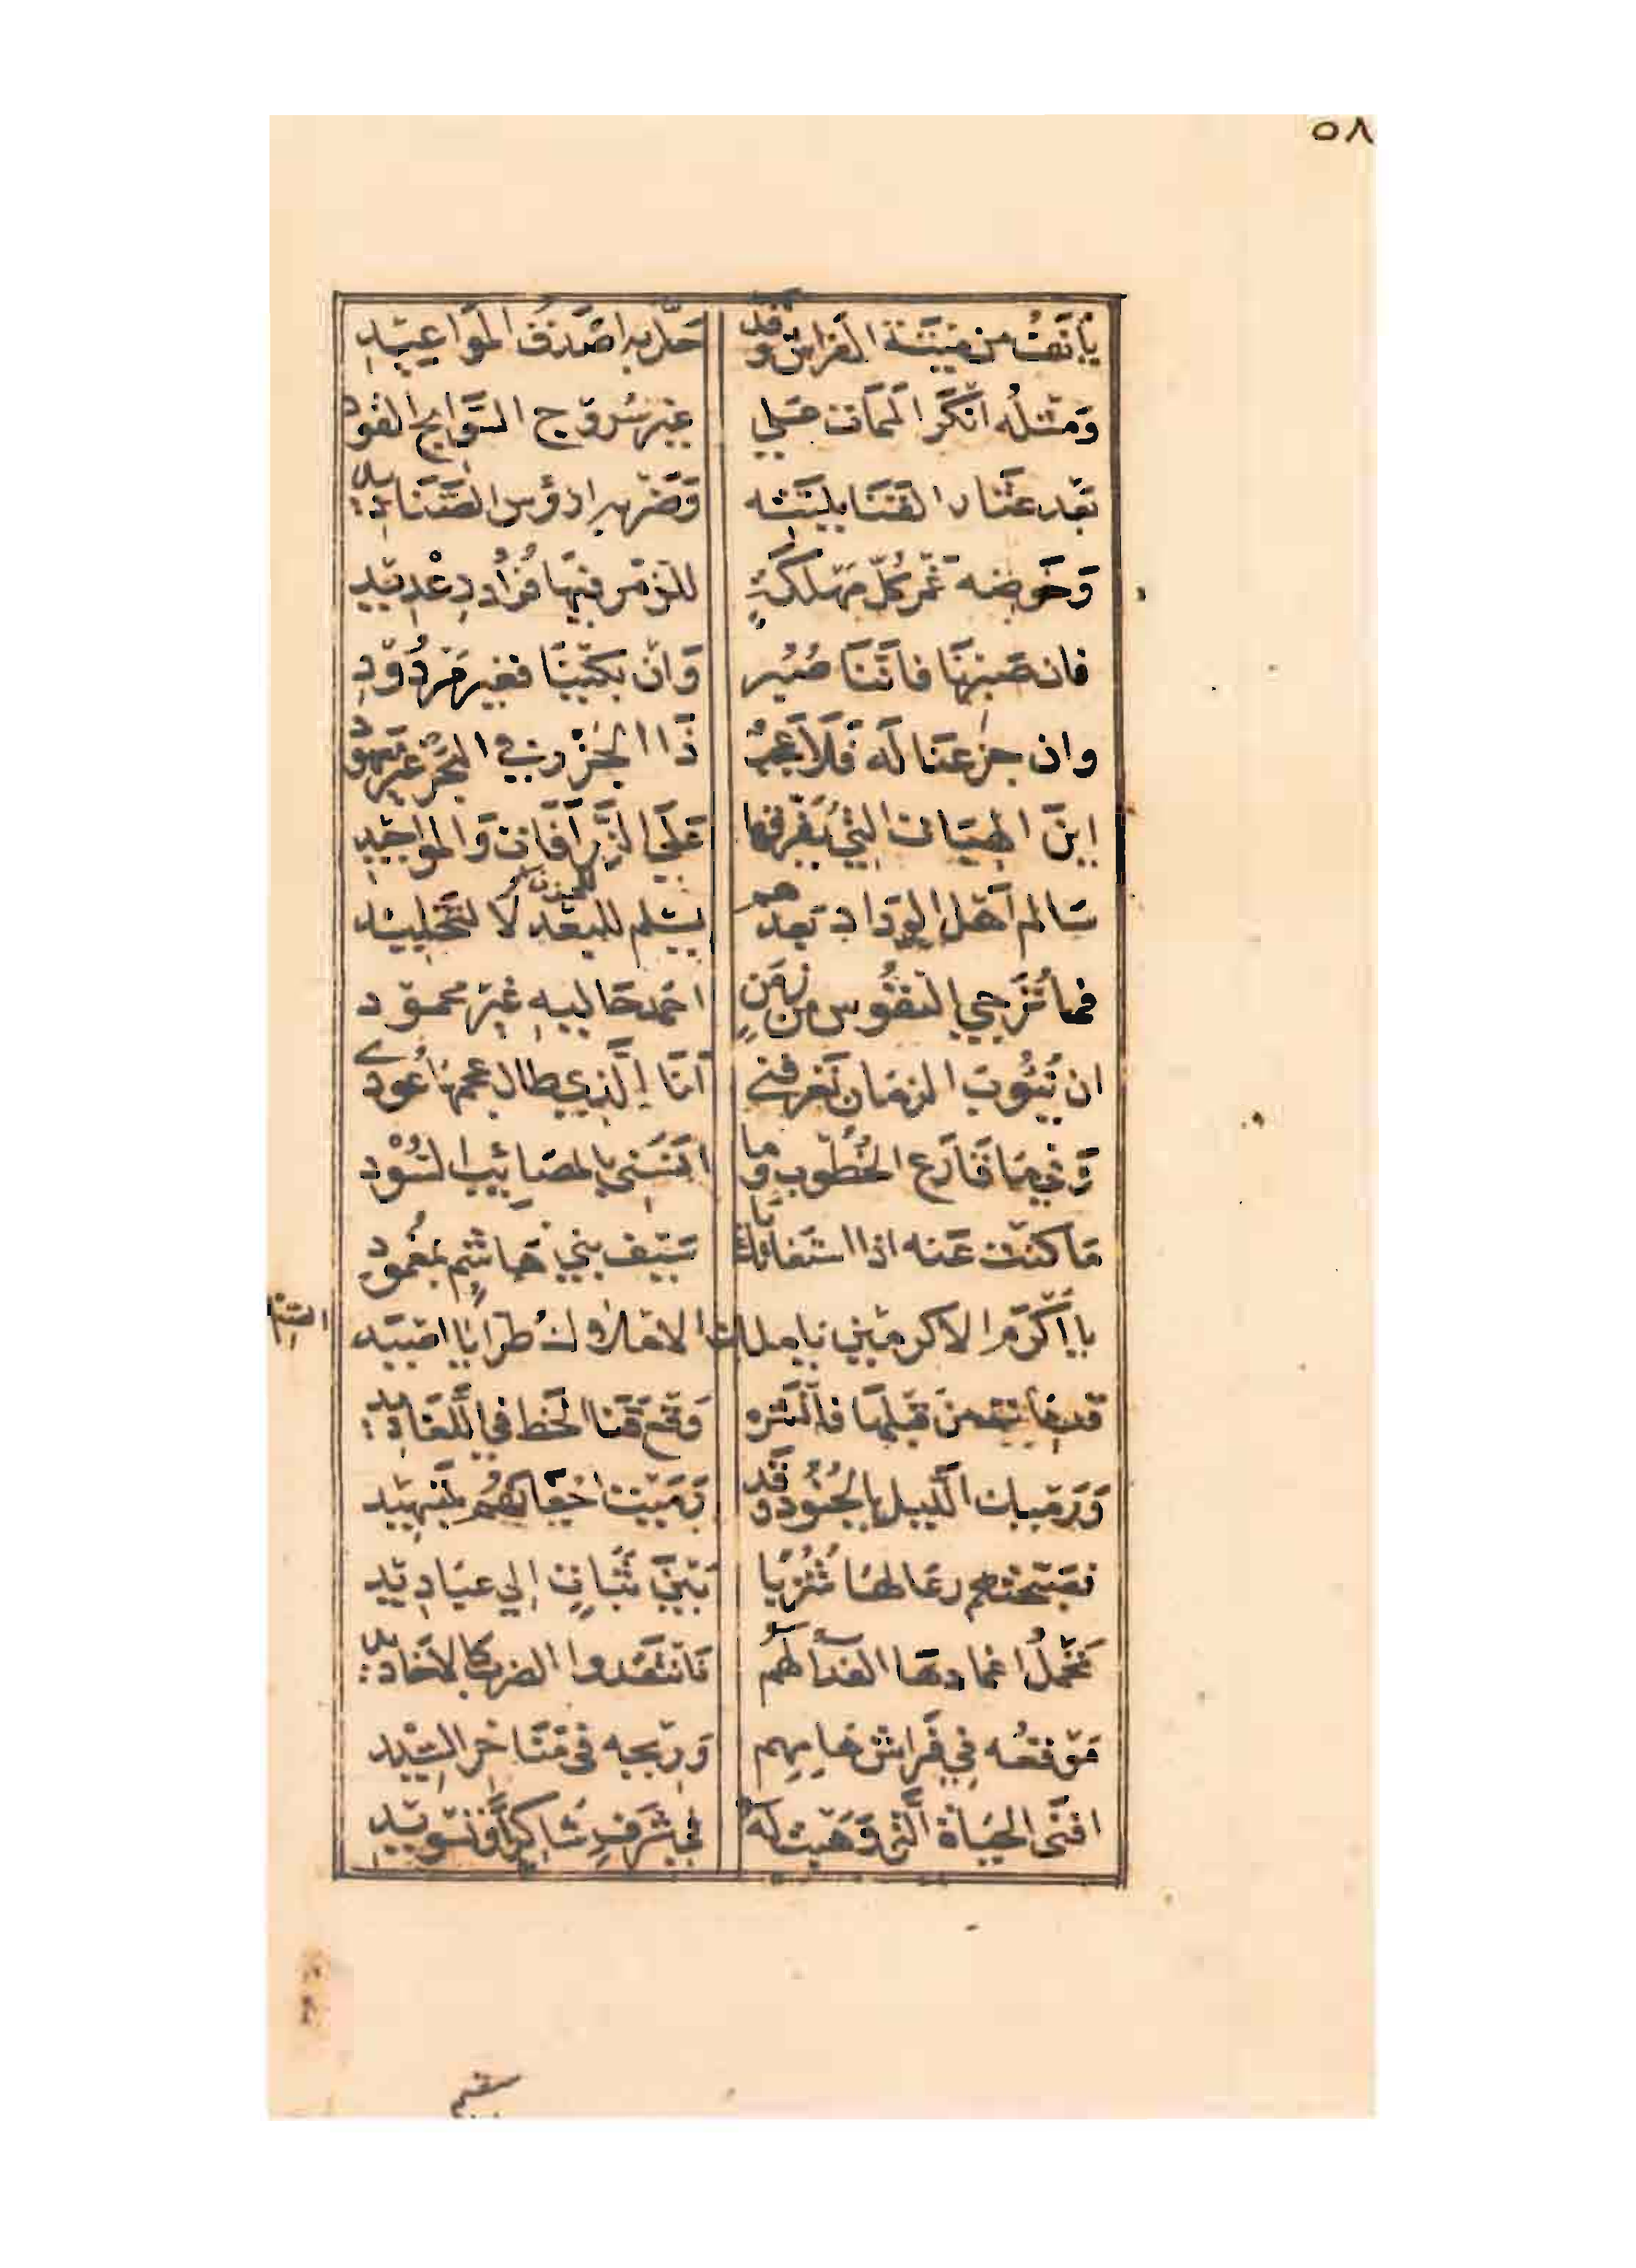 ٥٨
يأنف من ميتة الفراش وقد حل به اصدق المواعيد
ومثله انكر الممات على غير سروج السوابح القود
بعد عثار القنا بلبته وضربه ارؤس الصناديد
وخوضه غمر كل مهلكة للذمر فيها فؤاد رعديد
فان صبرنا فاننا صبر وان بكينا فغير مردود
وان جزعنا له فلا عجب ذا الجزر في البحر غير معهود
اين الهبات التي يفرقها على الزرافات والمواحيد
سالم اهل الوداد بعدهم يسلم للحزن لا لتخليد
فما ترجي النفوس من زمن احمد حاليه غير محمود
ان نيوب الزمان تعرفني انا الذي طال عجمها عودي
وفي ما قارع الخطوب وما انسني بالمصائب السود
ما كنت عنه اذا استغاثك يا سيف بني هاشم بمغمود
يا اكرم الاكرمين يا ملك الاملاك طرا يا اصيد الصيد
قد مات من قبلها فانشره وقع قنا الخط في اللغاديد
ورميك الليل بالجنود وقد رميت اجفانهم بتسهيد
فصبحتهم رعالها شزبا بين ثبات الى عباديد
تحمل اغمادها الفداء لهم فانتقدوا الضرب كالاخاديد
موقعه في فراش هامهم وريحه في مناخر السيد
افنى الحياة التي وهبت له في شرف شاكرا وتسويد